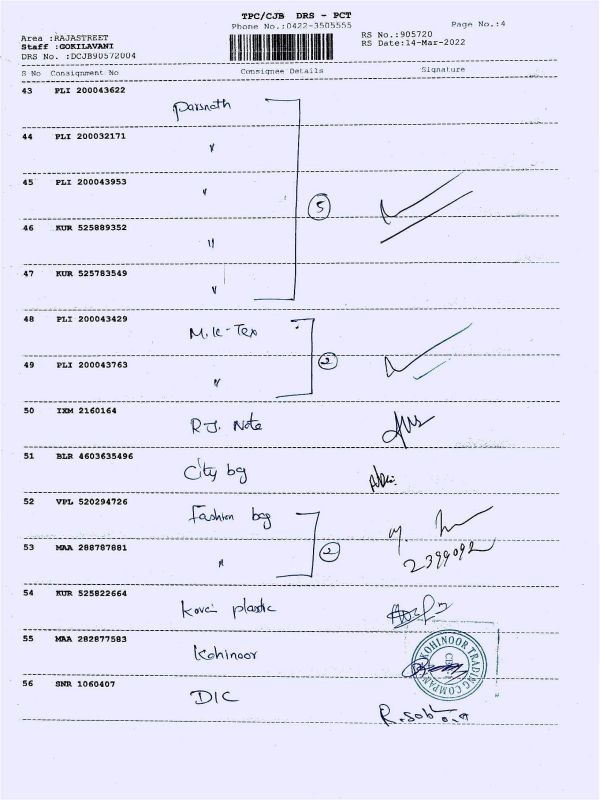 TPC/CJB DRS - PCT
Phone No.:0422-3505555 Page No.:4
Area :RAJASTREET RS No.:905720
Staff :GOKILAVANI RS Date:14-Mar-2022
DRS No. :DCJB90572004
S No Consignment No Consignee Details Signature
43 PLI 200043622 Parsnath
44 PLI 200032171 "
45 PLI 200043953 " 5
46 KUR 525889352 "
47 KUR 525783549 "
48 PLI 200043429 M.K-Tex
49 PLI 200043763 " 2
50 IXM 2160164 R.J. Note
51 BLR 4603635496 City bg
52 VPL 520294726 Fashion bag
53 MAA 288787881 " 2 2399092
54 KUR 525822664 Kovai plastic
55 MAA 282877583 Kohinoor KOHINOOR TRADING COMPANY
56 SNR 1060407 DIC